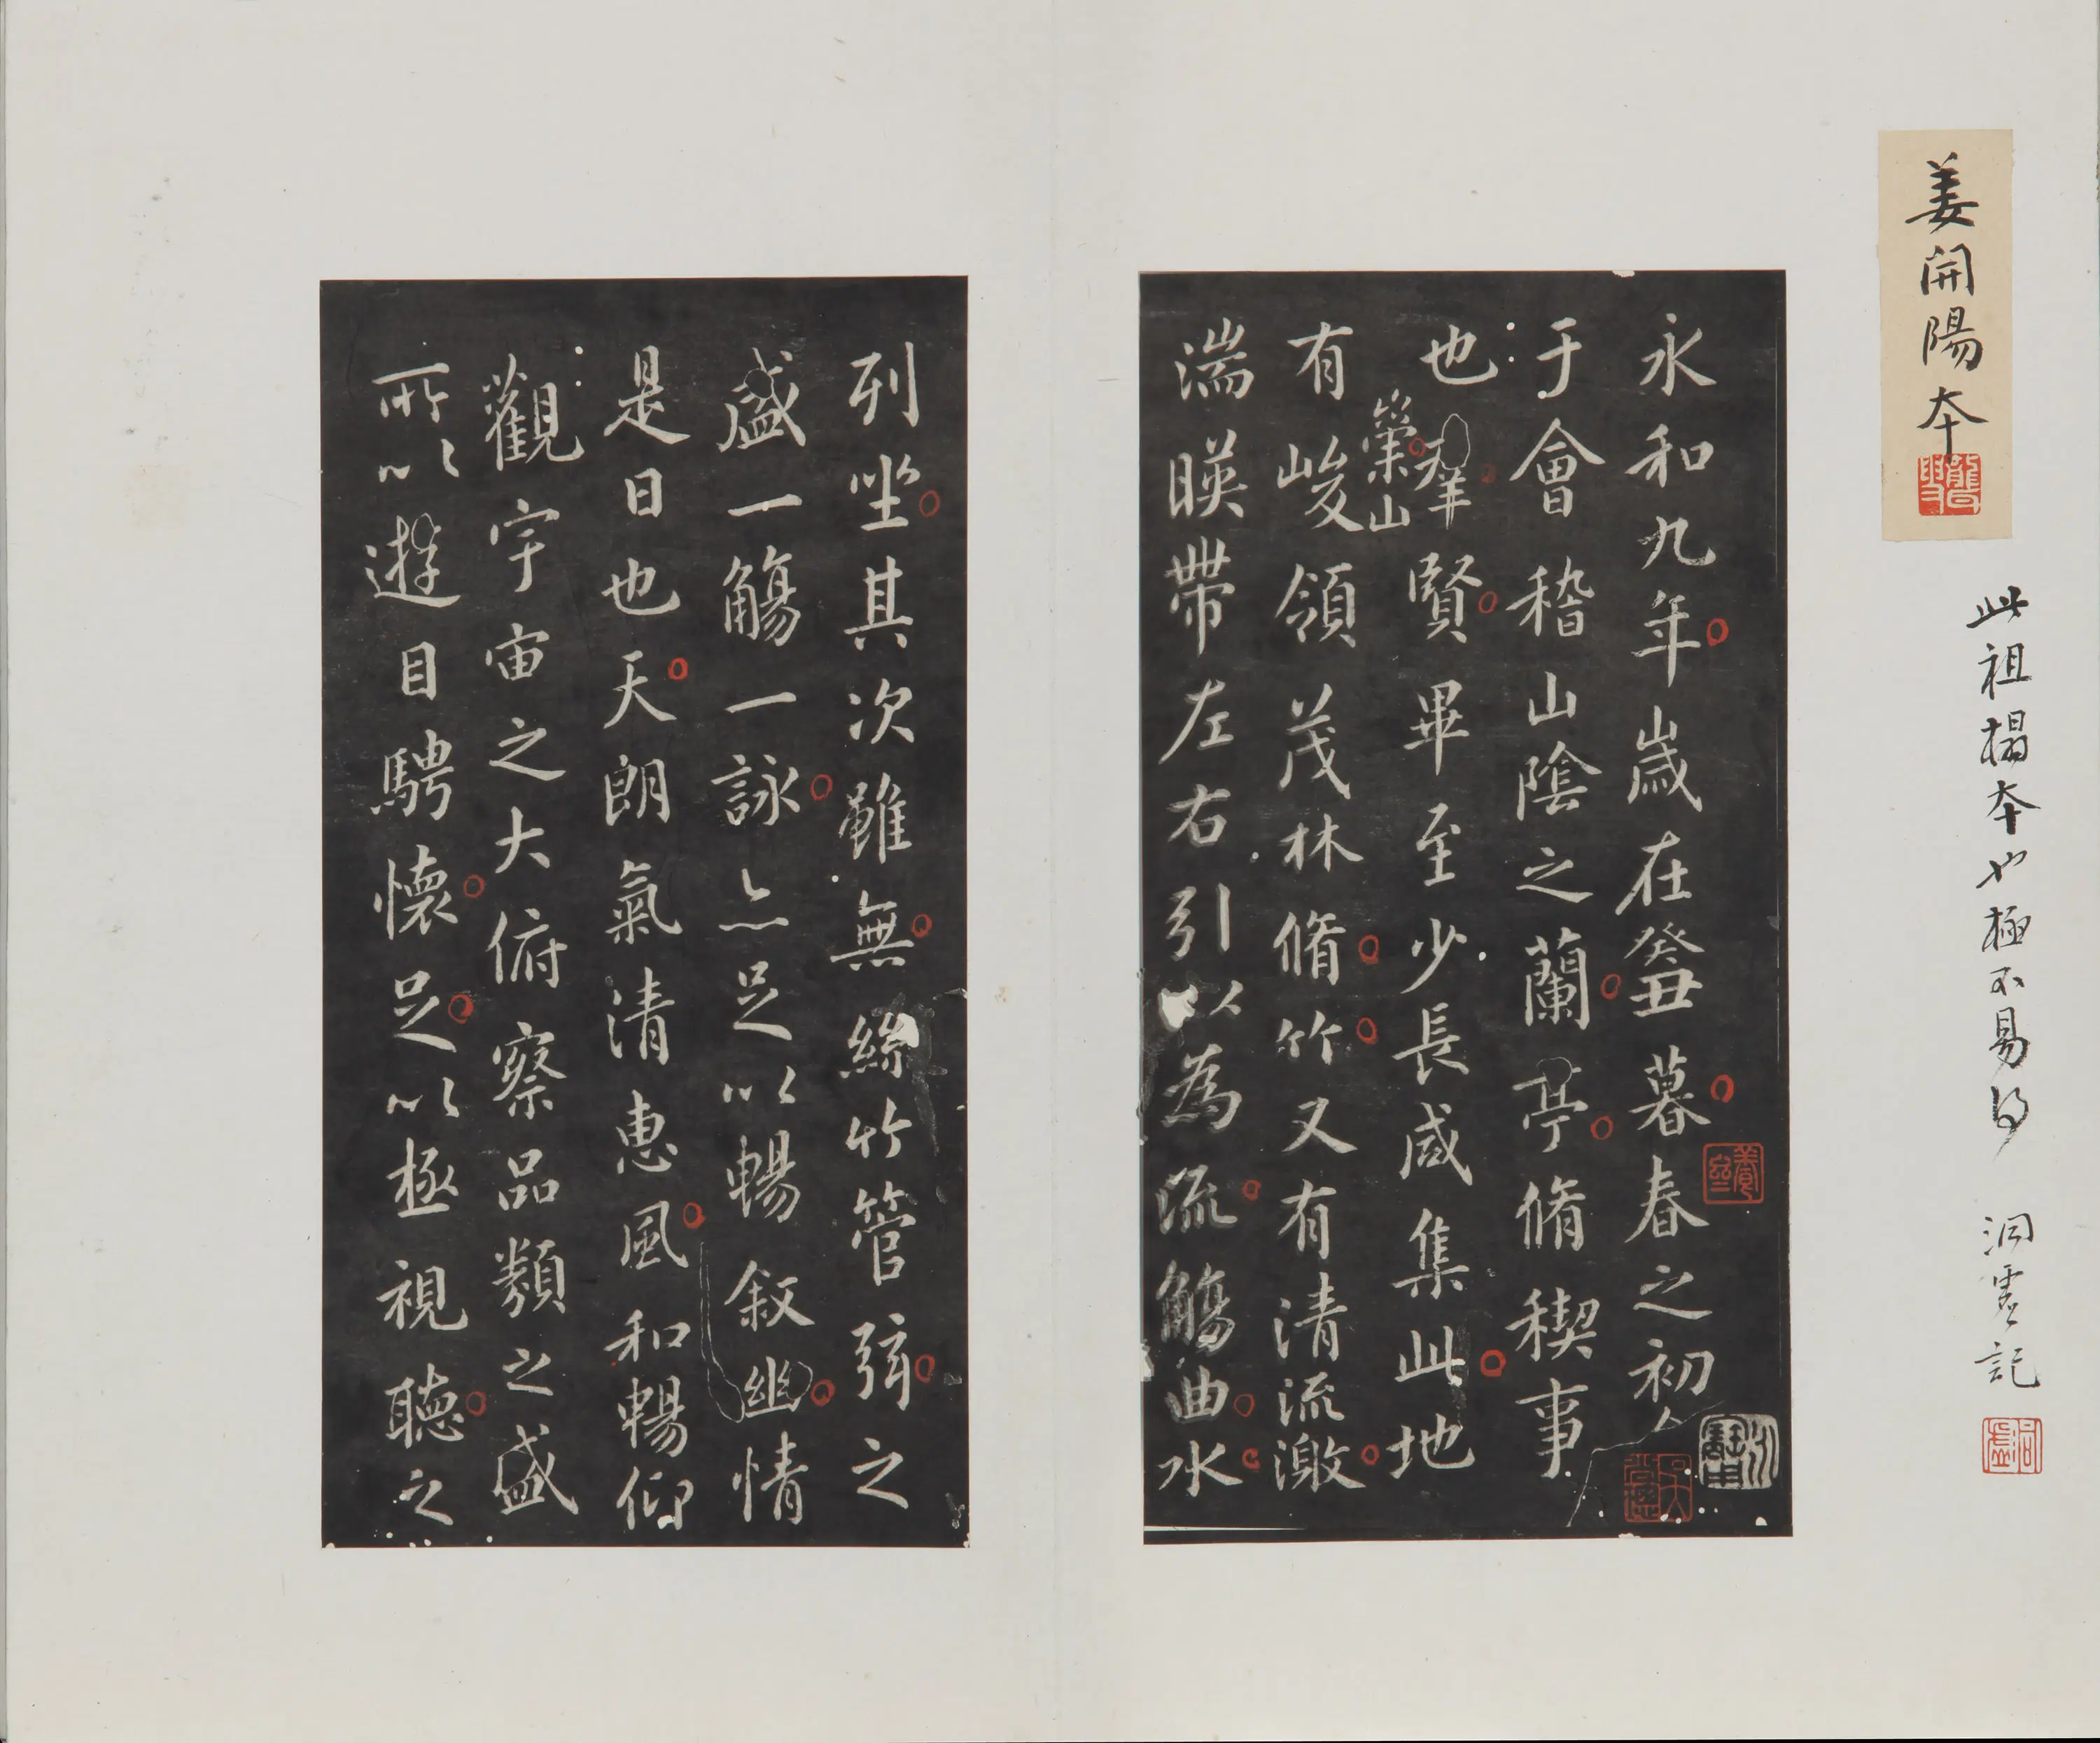 姜開陽本
此祖搨本也極不易得
洞虛記
永和九年歲在癸丑暮春之初
于會稽山陰之蘭亭脩稧事
也羣賢畢至少長咸集此地
崇山
有峻領茂林脩竹又有清流激
湍暎帶左右引以為流觴曲水
列坐其次雖無絲竹管弦之
盛一觴一詠亦足以暢敘幽情
是日也天朗氣清惠風和暢仰
觀宇宙之大俯察品類之盛
所以遊目騁懷足以極視聽之
洞虛